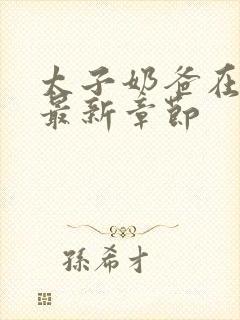 太子奶爸在
最新章節
孫希才